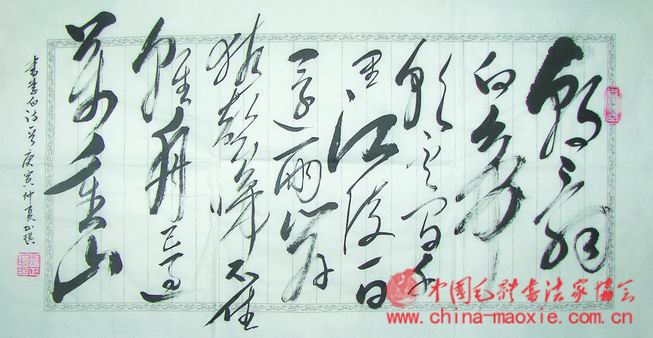 朝辞
白帝
彩云间千
里江陵一日
还两岸
猿声啼不住
轻舟已过
万重山
书李白诗一首 庚寅仲夏
中国毛体书法家协会
www.china-maoxie.com.cn